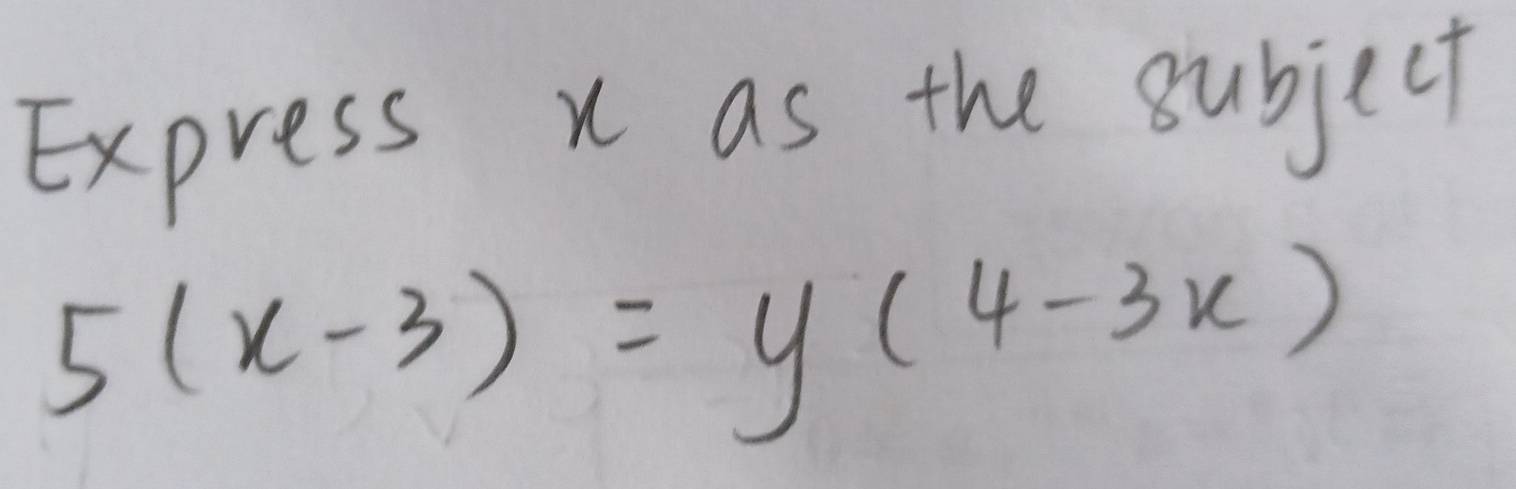 Express x as the subject
5(x-3) = y(4-3x)